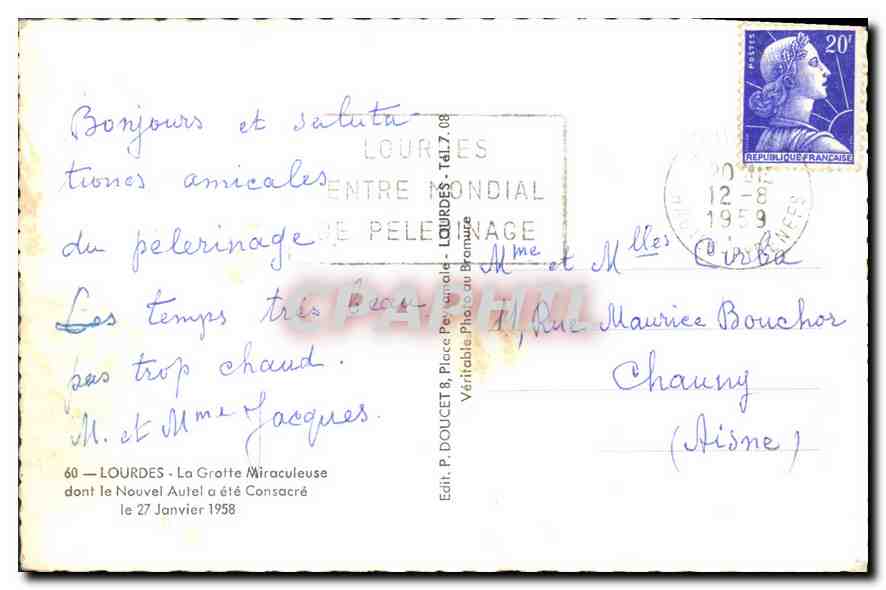 Bonjours et saluta
tiones amicales
du pèlerinage
Les temps très beau
pas trop chaud.
M. et Mme Jacques.
60 — LOURDES - La Grotte Miraculeuse
dont le Nouvel Autel a été Consacré
le 27 Janvier 1958
LOURDES
CENTRE MONDIAL
DE PELERINAGE
Edit. P. DOUCET 8, Place Peyramale - LOURDES - Tél. 7.08
Véritable Photo au Bromure
POSTES
20F
REPUBLIQUE FRANÇAISE
12-8
1959
PYRENEES
Mme et Mlles Cirba
11, Rue Maurice Bouchor
Chauny
(Aisne)
CPAPHIL